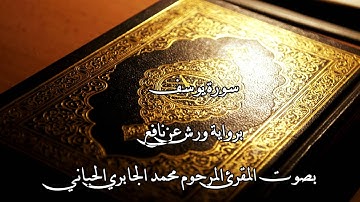 سورة يوسف
برواية ورش عن نافع
بصوت المقرئ المرحوم محمد الجابري الحياني